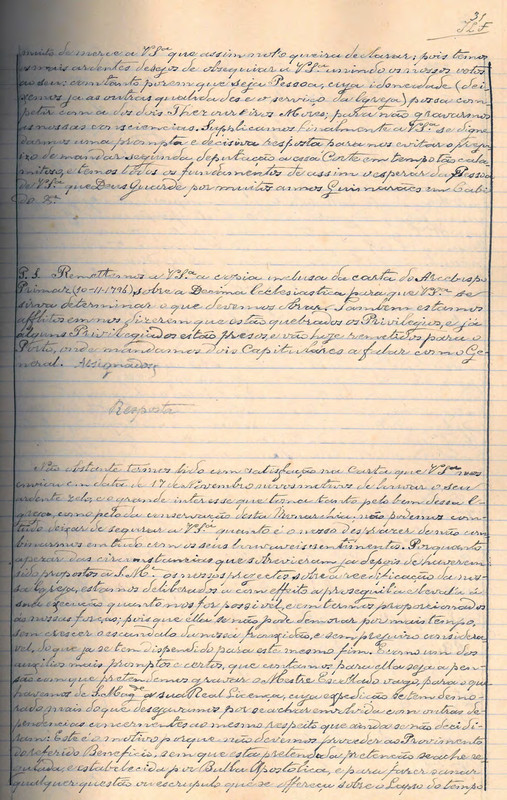 31
muito de merce a V.Sª que assim no-lo queira declarar; pois temos
os mais ardentes desejos de obsequiar a V.Sª unindo os nossos votos
ao seu; com tanto porem que seja Pessoa, cuja idoneidade (dei-
xemos ja as outras qualidades e o serviço da Igreja) possa com-
petir com a dos dois Thezoureiros Mores, para não gravarmos
as nossas consciencias. Supplicamos finalmente a V.Sª se digne
darmos uma prompta e decisiva resposta para nos evitar o prejui-
zo de mandar segunda deputação a essa Corte em tempo tão cala-
mitoso, e temos todos os fundamentos de assim o esperar da Pessoa
de V.Sª que Deus Guarde por muitos annos Guimarães em Cabi-
do &ª
P.S. Remettemos a V.Sª a copia inclusa da carta do Arcebispo
Primaz (10-11-1796) sobre a Decima Ecclesiastica, para que V.Sª se
sirva determinar o que devemos obrar. Tambem estamos
afflictos em nos dizerem que estão quebrados os Privilegios, e já
alguns Privilegiados estão presos, e vão hoje remettidos para o
Porto, onde mandamos dois Capitulares a fallar com o Ge-
neral. Assignados
Resposta
Não obstante termos lido com satisfação na Carta que V.Sª nos
enviou em data de 17 de Novembro novos motivos de louvar o seu
ardente zelo, e o grande interesse que toma tanto pelo bem dessa I-
greja, como pela conservação desta Monarchia, não podemos com
tudo deixar de segurar a V.Sª quanto é o nosso desprazer de não com-
binarmos em tudo com os seus louvaveis sentimentos. Porquanto
apezar das circumstancias que sobrevieram, ja depois de haverem
sido propostos a S.M. os nossos projectos sobre a reedificação da nos-
sa Igreja, estamos deliberados a com effeito a proseguil-a e leval-a á
sua execução quanto nos for possivel, e em termos proporcionados
ás nossas forças; pois que ella se não pode demorar por mais tempo,
sem crescer o escandalo da nossa froxidão, e sem prejuizo considera-
vel, do que ja se tem dispendido para este mesmo fim. E como um dos
auxilios mais promptos e certos, que contamos para ella seja a pen-
são com que pretendemos gravar o Mestre Escolado vago, para o que
havemos de S. Mag.de a sua Real Licença, cuja expedição se tem demo-
rado mais do que desejaramos por se achar envolvida com outras de-
pendencias concernentes ao mesmo respeito que ainda se não decidi-
ram: Este é o motivo porque não devemos proceder ao Provimento
do referido Beneficio, sem que esta pretendida pretenção se ache re-
gulada e estabelecida por Bulla Apostolica, e para fazer sanar
qualquer questão ou escrupulo que se offereça sobre o Lapso do tempo